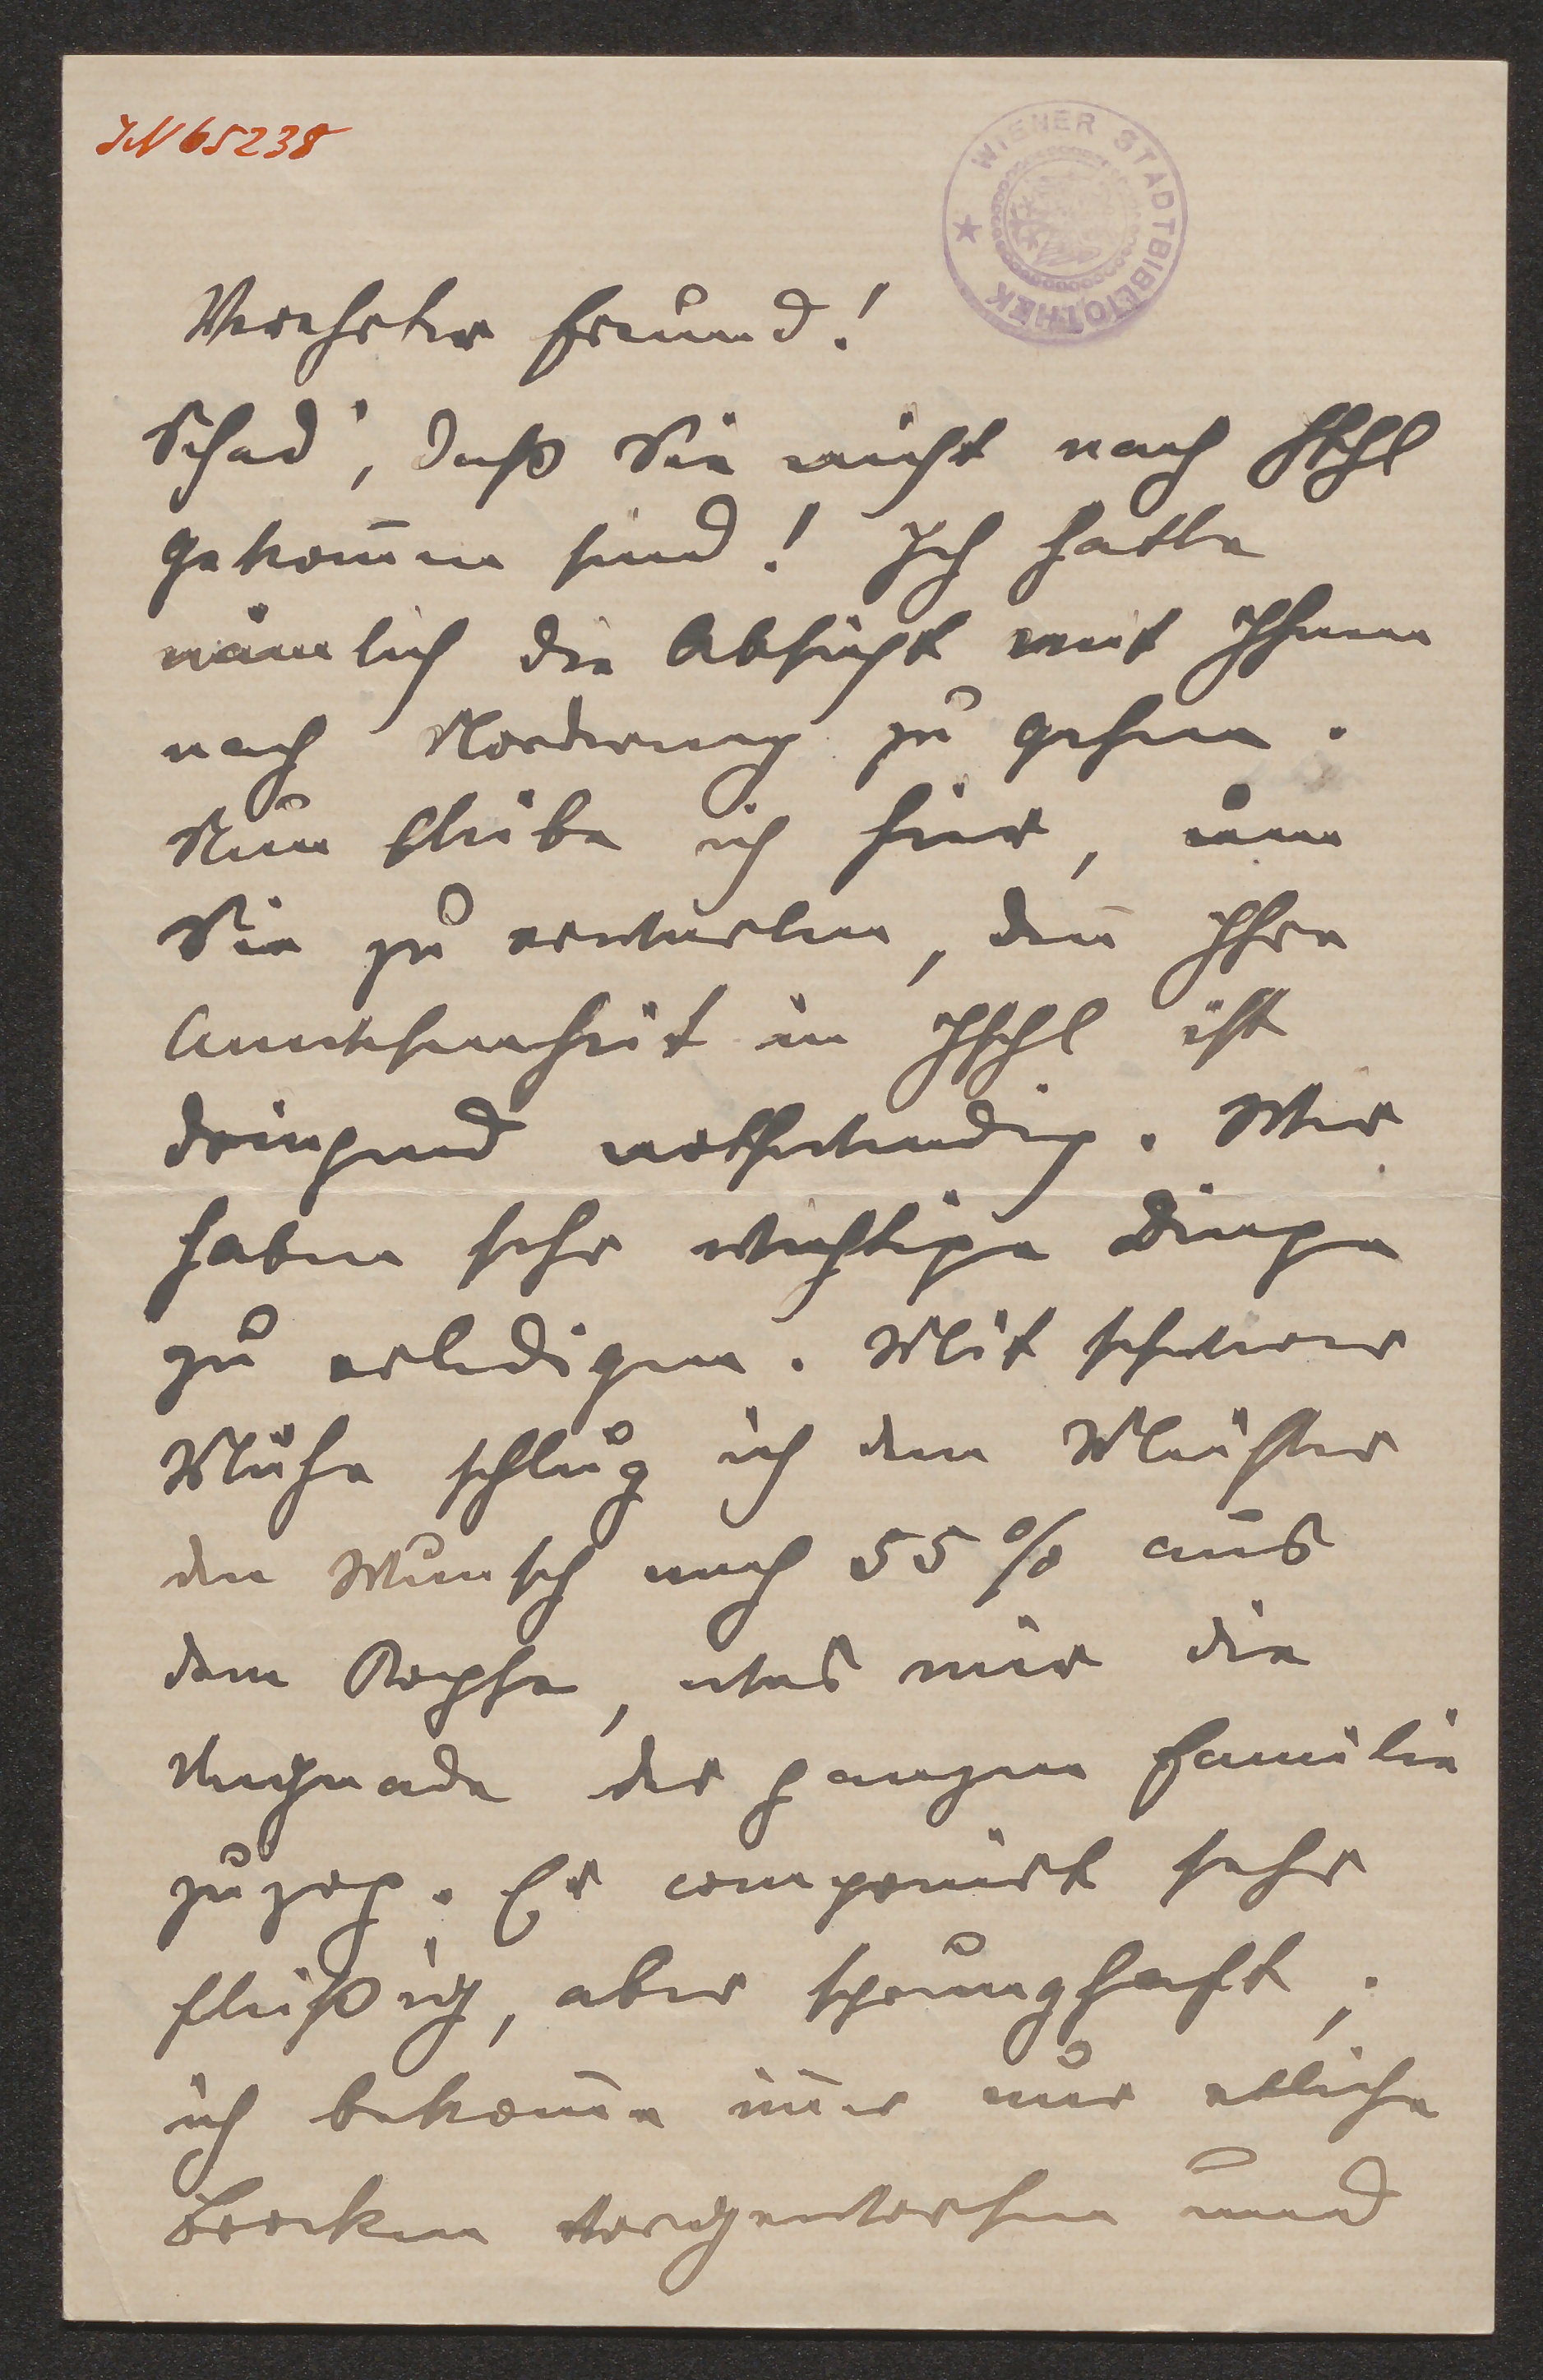 IN 65238
WIENER STADTBIBLIOTHEK
Verehrter Freund!
Schad', daß Sie nicht nach Ischl
gekom̄en sind! Ich hatte
nämlich die Absicht mit Ihnen
nach Norderney zu gehen.
Nun bleibe ich hier, um
Sie zu erwarten, den̄ Ihre
Anwesenheit in Ischl ist
dringend nothwendig. Wir
haben sehr wichtige Dinge
zu erledigen. Mit schwerer
Mühe schlug ich dem Meister
den Wunsch nach 55 % aus
dem Kopfe, was mir die
Ungnade der ganzen Familie
zuzog. Er componirt sehr
fleißig, aber sprunghaft;
ich bekom̄e im̄er nur etliche
Brocken vorgeworfen und